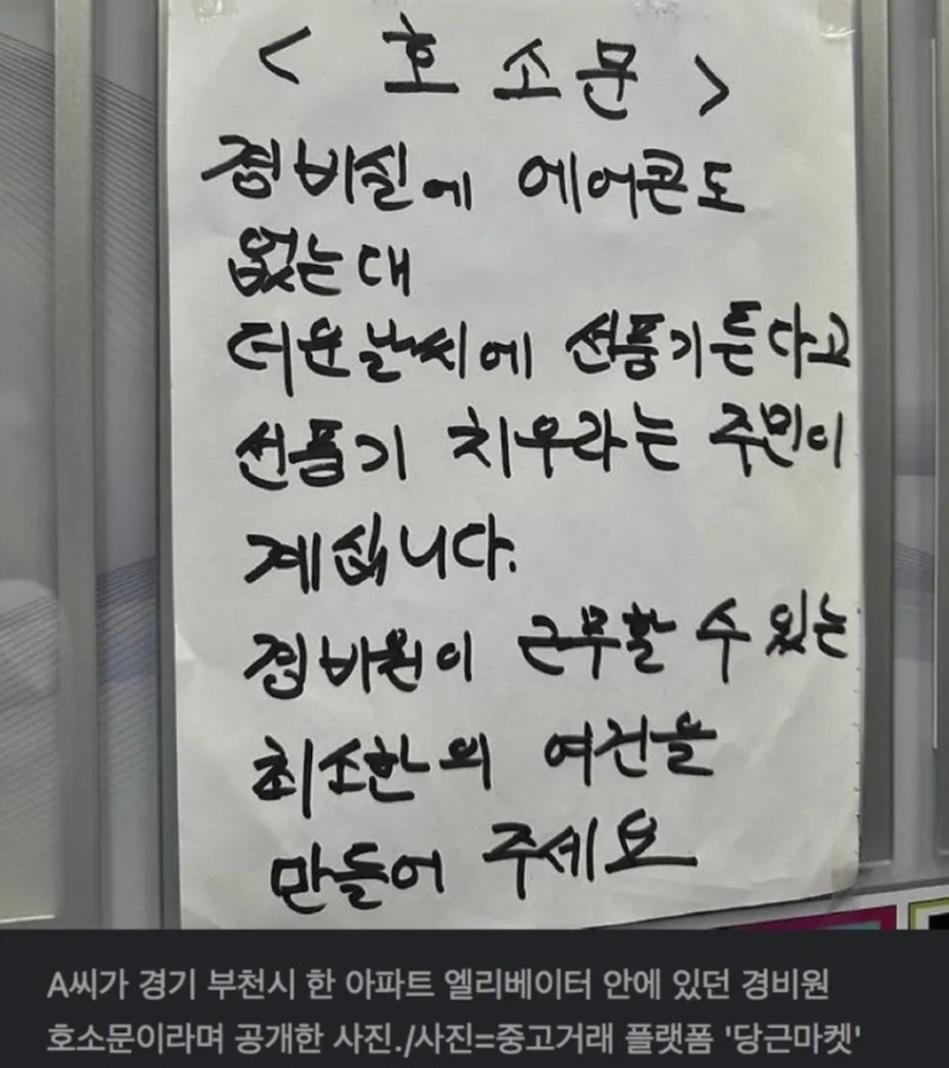 < 호소문 >
경비실에 에어콘도
없는대
더운날씨에 선풍기튼다고
선풍기 치우라는 주민이
계십니다.
경비원이 근무할 수 있는
최소한의 여건을
만들어 주세요
A씨가 경기 부천시 한 아파트 엘리베이터 안에 있던 경비원
호소문이라며 공개한 사진./사진=중고거래 플랫폼 '당근마켓'